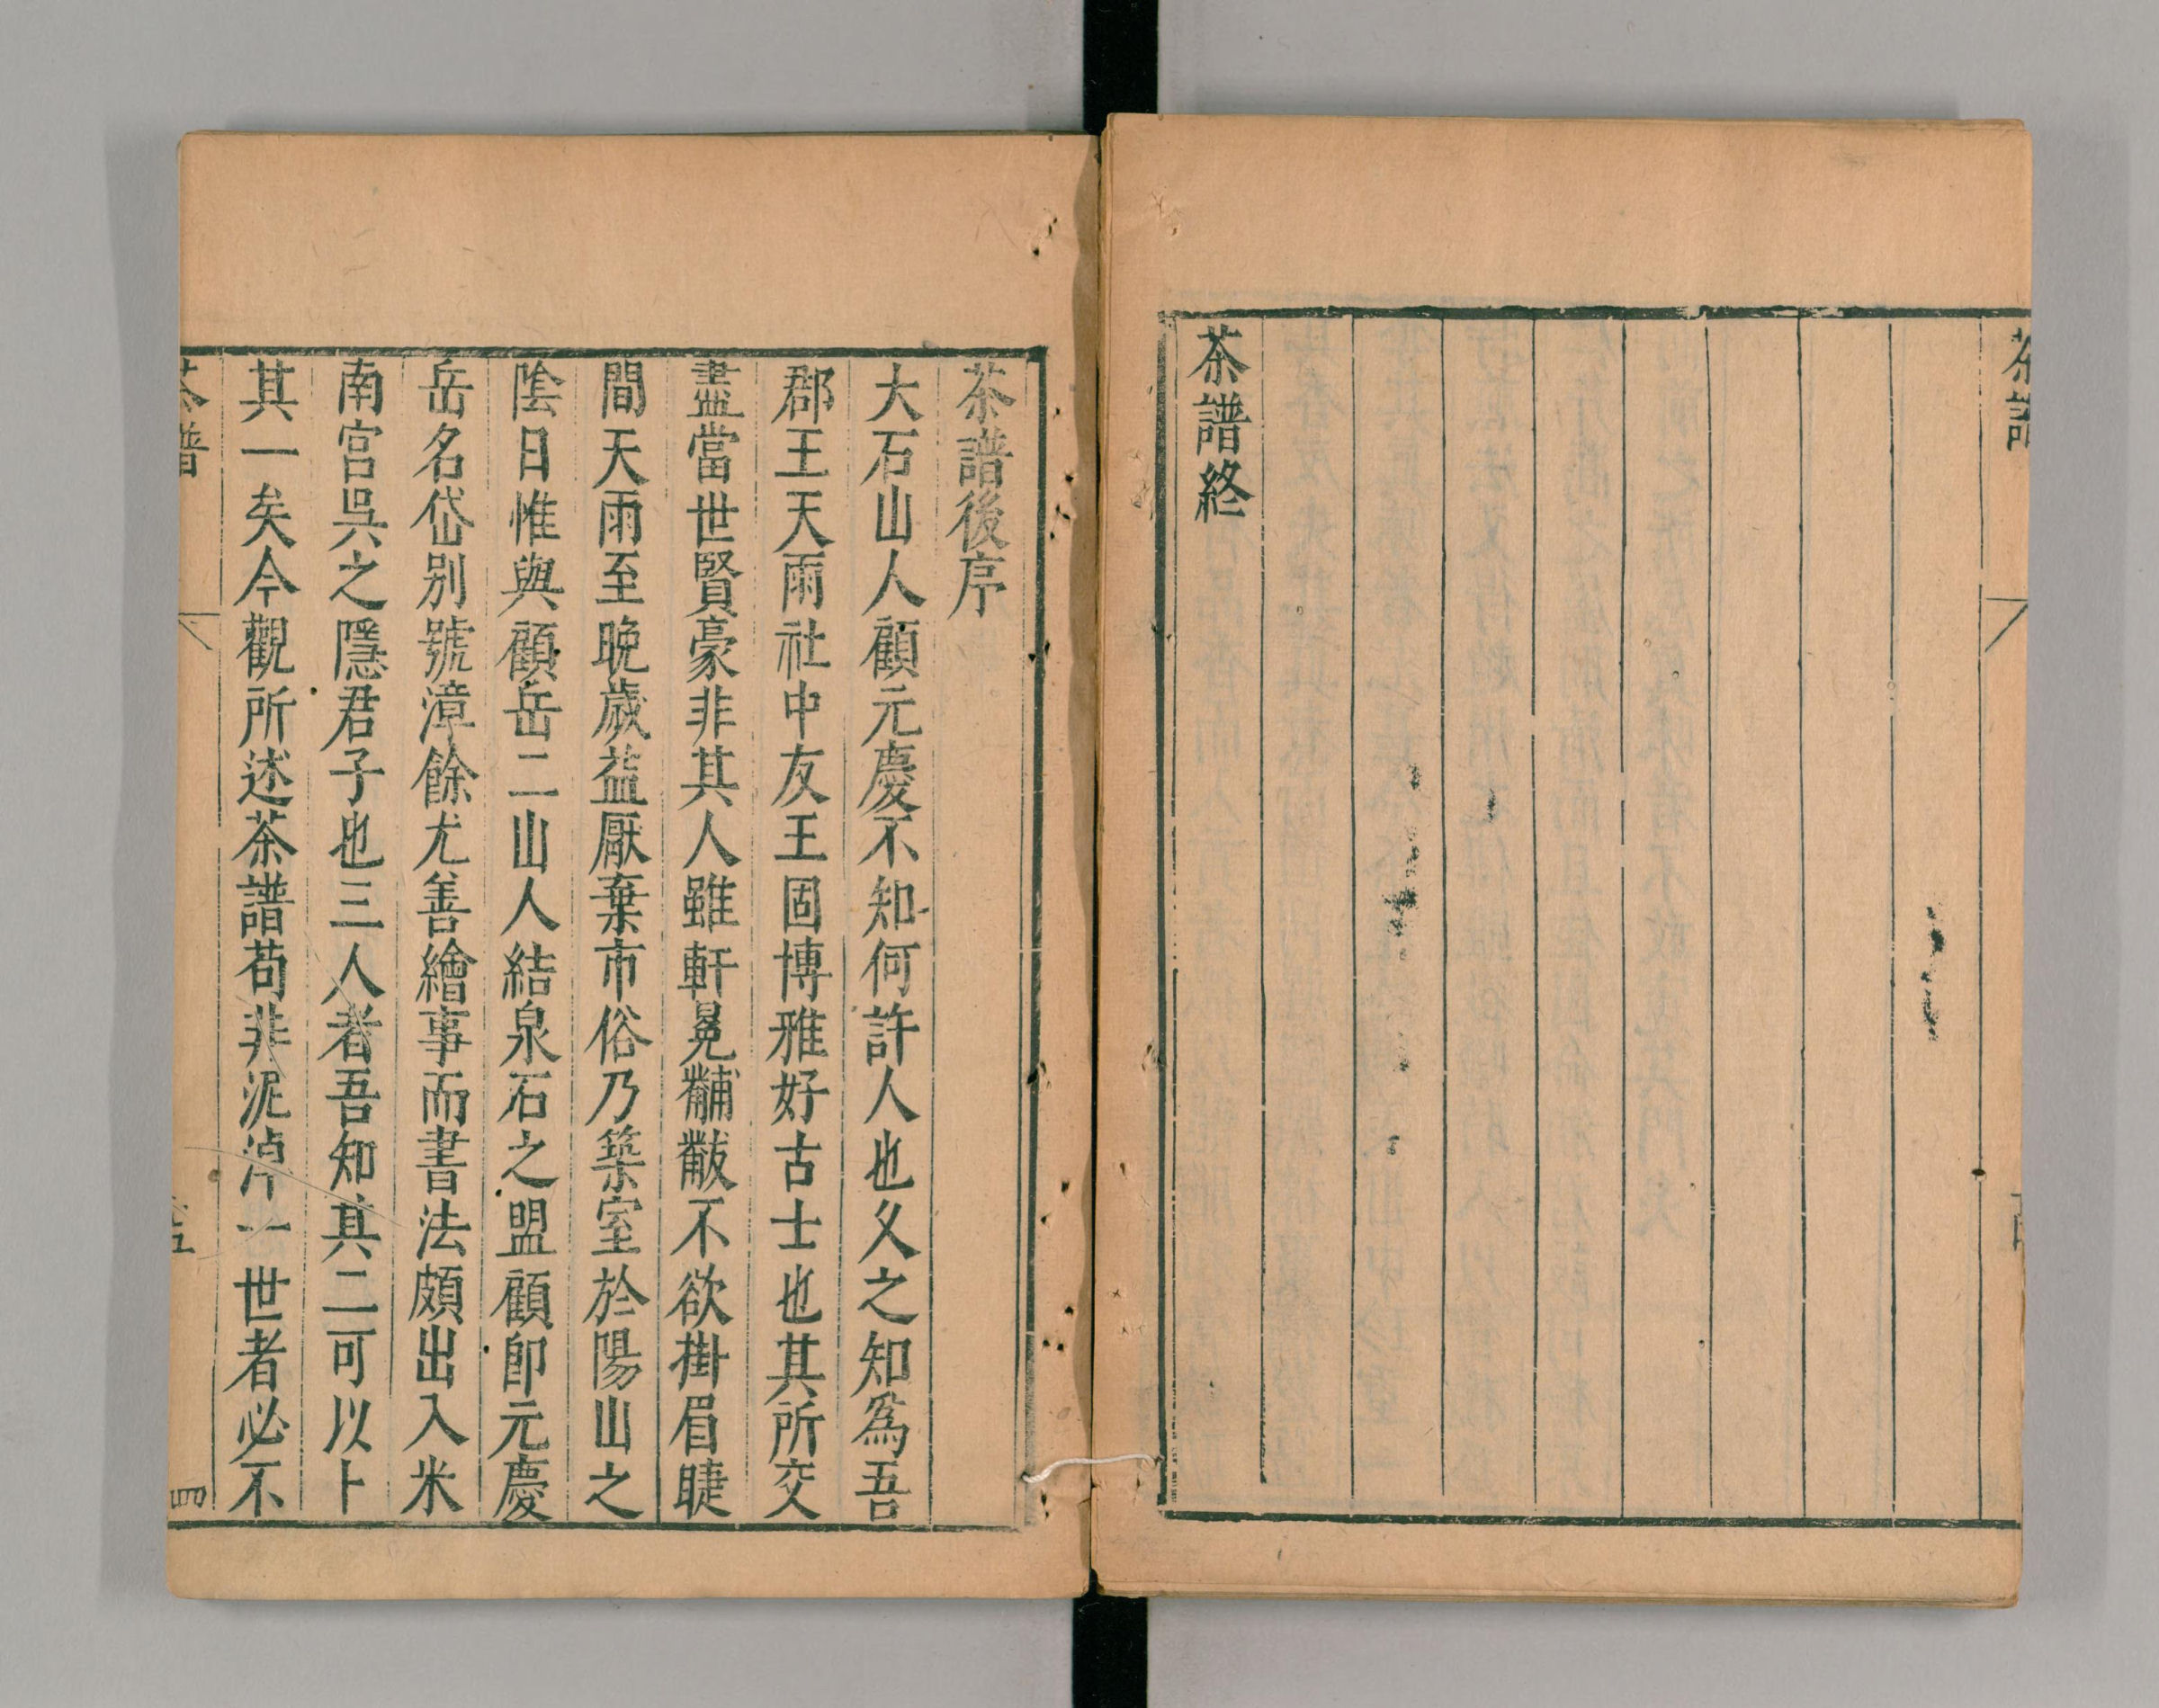 茶譜
茶譜終
茶譜後序
大石山人顧元慶不知何許人也久之知爲吾
郡王天雨社中友王固博雅好古士也其所交
盡當世賢豪非其人雖軒冕黼黻不欲掛眉睫
間天雨至晚歲益厭棄市俗乃築室於陽山之
陰日惟與顧岳二山人結泉石之盟顧卽元慶
岳名岱别號漳餘尤善繪事而書法頗出入米
南宮吳之隱君子也三人者吾知其二可以卜
其一矣今觀所述茶譜苟非泥淖一世者必不
茶譜